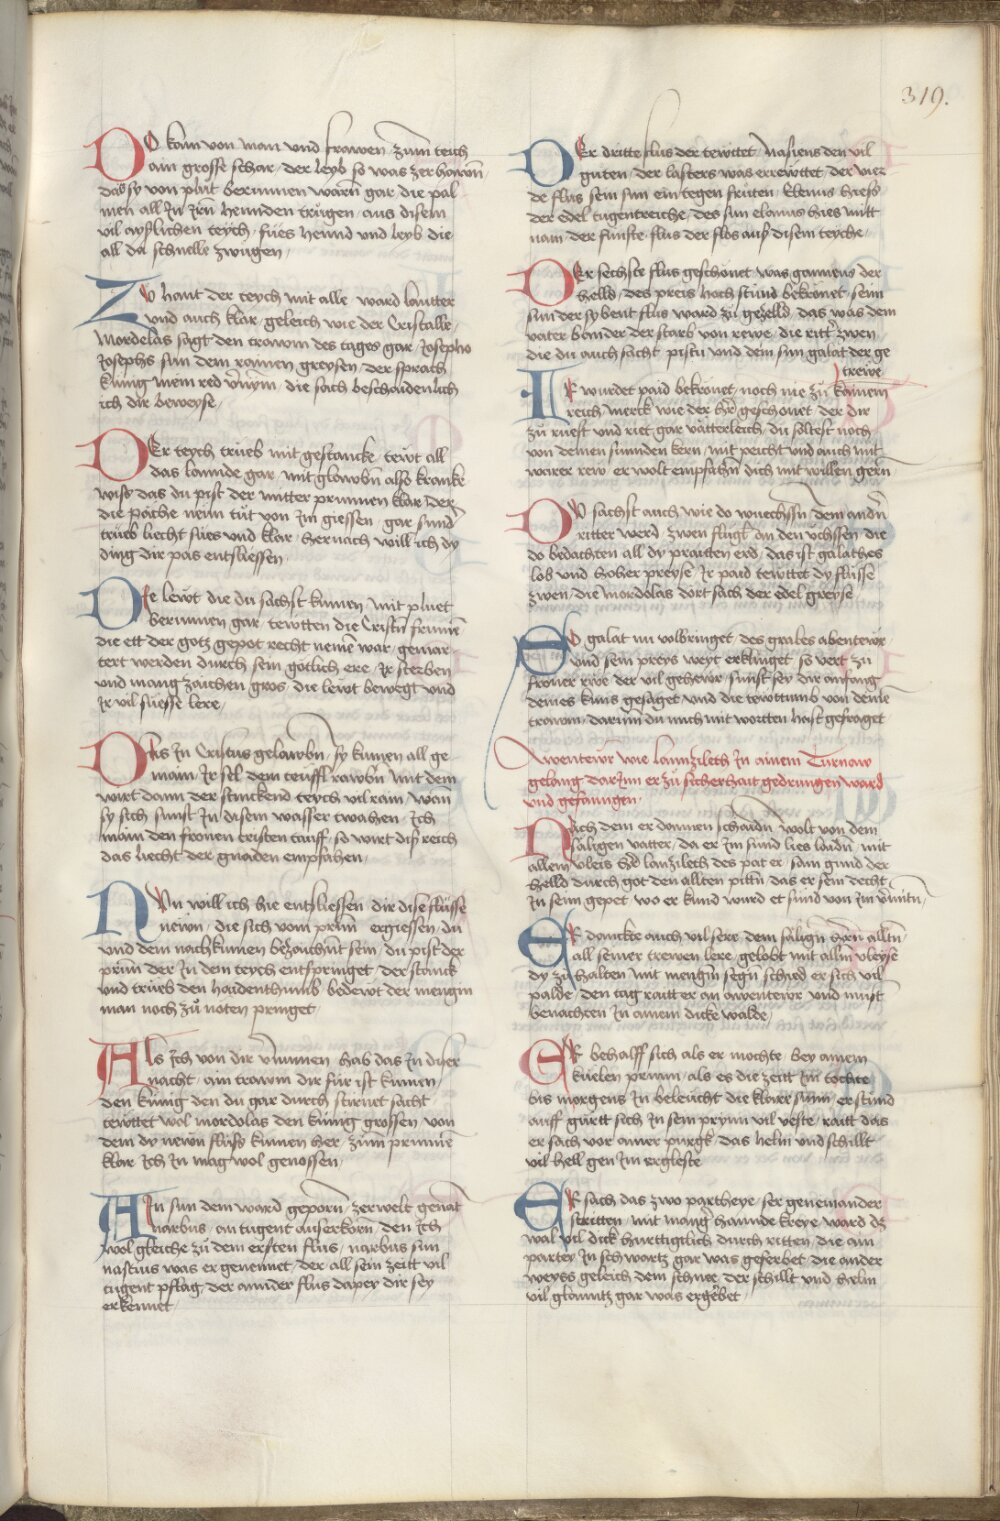 319.
DO kam von man und frawen zum teich
ain grosse schar der leyb so was zerhawen
das sy von pluͤt berunnen warn gar die pal
men all Jn Jrn hennden truͤgen aus disem
vil ayslichen teych fuͤes hennd und leyb die
all da schnelle zwugen
ZU hant der teych mit alle ward lautter
und auch klar geleich wie der Cristalle
Mordelas sagt den trawm des tages gar Josepho
Josephs sun dem ramen greysen der sprach
kunig mein red vernym die sach beschaidenlich
ich dir beweyse
DEr teych trueb mit gestancke tewt all
das lannde gar mit glawbn also krancke
wiss das du pist der mitter prunnen klar Der
die pache newn tuͤt von Jm giessen gar sunder
trueb liecht suͤes und klar hernach will ich dy
ding dir pas entsliessen
DIe lewt die du sachst kumen mit pluet
berunnen gar tewtten die Cristn frumen
die ett der gotz gepot recht neme war gemar
tert werden durch sein gotlich ere Jr sterben
und manig zaichen gros die lewt bewegt und
Jr vil suesse lere
DAs Jn Cristus gelawbn sy kumen all ge
main Jr sel dem teuffl rawbn mit dem
wirt dann der stinckend teych vil rain wan
sy sich sunst Jn disem wasser twahen Jch
main den fronen cristen tauff so wirt dis reich
das liecht der gnaden empfahen
NUn will ich hie entsliessen dir dise fluͤsse
newn die sich vom prunn ergiessen du
und dein nachkumen bezaichnt sein du pist der
prun der Jn dem teych entspringet der stanck
und trueb den haidenthumb bedewt der mengin
man noch zuͤ noten pringet
ALs Jch von dir vernumen hab das Jn diser
nacht ain trawm dir fuͤr ist kumen
den kunig den du gar durch stirnet sacht
tewttet wol mordolas den kunig grossen von
dem dy newn fluss kumen her zum prunne
klar Jch Jn mag wol genossen
AIn sun dem ward geporn zerwelt genant
narbus an tugent auserkorn den Jch
wol gleiche zuͤ dem ersten flus narbus sun
nascius was er genennet der all sein zeitt vil
tugent pflag der annder flus daper dir sey
erkennet
DEr dritte flus der tewttet Nasiens den vil
guten der lasters was errewttet der vier
de flus sein sun ein tegen fruͤten Elenus hiess
der edel tugentreiche des sun elanus hies mitt
nam der funfte flus der flos aus disem teyche
DEr sechste flus geschonet was gamiens der
helld des preis hoch stund bekronet sein
sun der sybent flus ward zuͤ gezelld das was dem
vater bander der starb von rewe die ritter zwen
die du auch sacht pistu und dein sun galat der ge
trewe
IR wurdet paid bekronet noch nie zuͤ kainem
reich merck wie der her geschonet der dir
zuͤ rueft und riet gar vatterleich du soltest noch
von deinen sunnden kern mit peicht und auch mit
warer rew er wolt empfahn dich mit willen gern
DU sachst auch wie do wuechssn dem andn
ritter werd zwen flugl an den uchssen die
do bedachten all dy praitten erd das ist galathes
lob und hoher preyse Jr paid tewttet dy flusse
zwen die mordolas dort sach der edel greyse
SO galat nu volbringet des grales abentewr
und sein preys weyt erklinget so vert zu
froner rwe der vil gehewr sunst sey dir anfang
deines kuns gesaget und die tewttumb von deinem
trawm darumb du mich mit wortten hast gefraget
Awentewr wie lannzileth Jn ainem Turnay
gelang darJnn er zuͤ sicherhait gedrungen ward
und gefanngen
NAch dem er dannen schaidn wolt von dem
saligen vatter da er Jm sund lies laidn mit
allem vleis her lanzilech des pat er sam gund der
helld durch got den allten pittn das er sein decht
Jn seim gepet wo er kund wurd et sund von Jm vermitn
ER danckte auch vil sere dem saligen hern alltn
all seiner trewen lere gelobt mit allem vleyse
dy zuͤ halten mit mengem segn schied er sich vil
palde den tag raitt er an awentewr und must
benachten Jn ainem dicke walde
ER behalff sich als er mochte bey ainem
kuelen prunn als es die zeitt Jm tochte
bis morgens Jn beleucht die klare sunn er stuͤnd
auff gurtt sich Jn sein prynn vil veste raitt das
er sach vor ainer purgk das helm und schillt
vil hell gen Jm ergleste
ER sach das zwo partheye ser geneinander
stritten mit manger hannde kreye ward dz
wal vil dick hurttigtlich durch ritten die ain
partey Jn schwartz gar was geferbet die ander
weyss geleich dem schnee der schillt und helm
vil glanntz gar was ergerbet